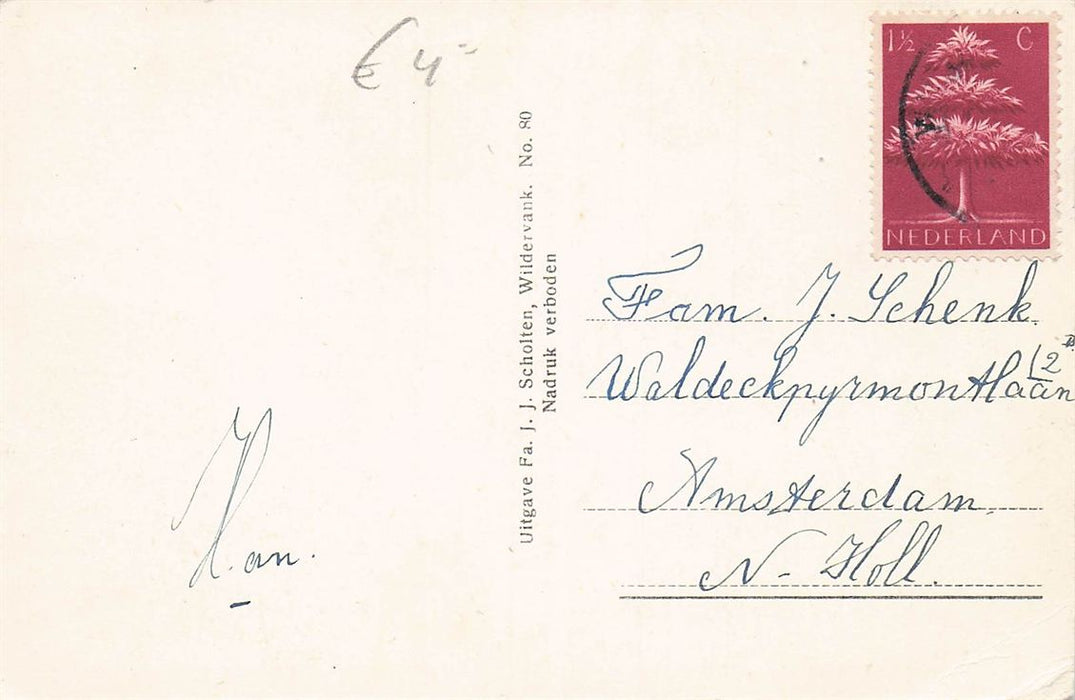 € 4-
1½ C
NEDERLAND
Uitgave Fa. J. J. Scholten, Wildervank. No. 80
Nadruk verboden
Fam. J. Schenk.
Waldeckpyrmontlaan 12
Amsterdam.
N-Holl.
Han.